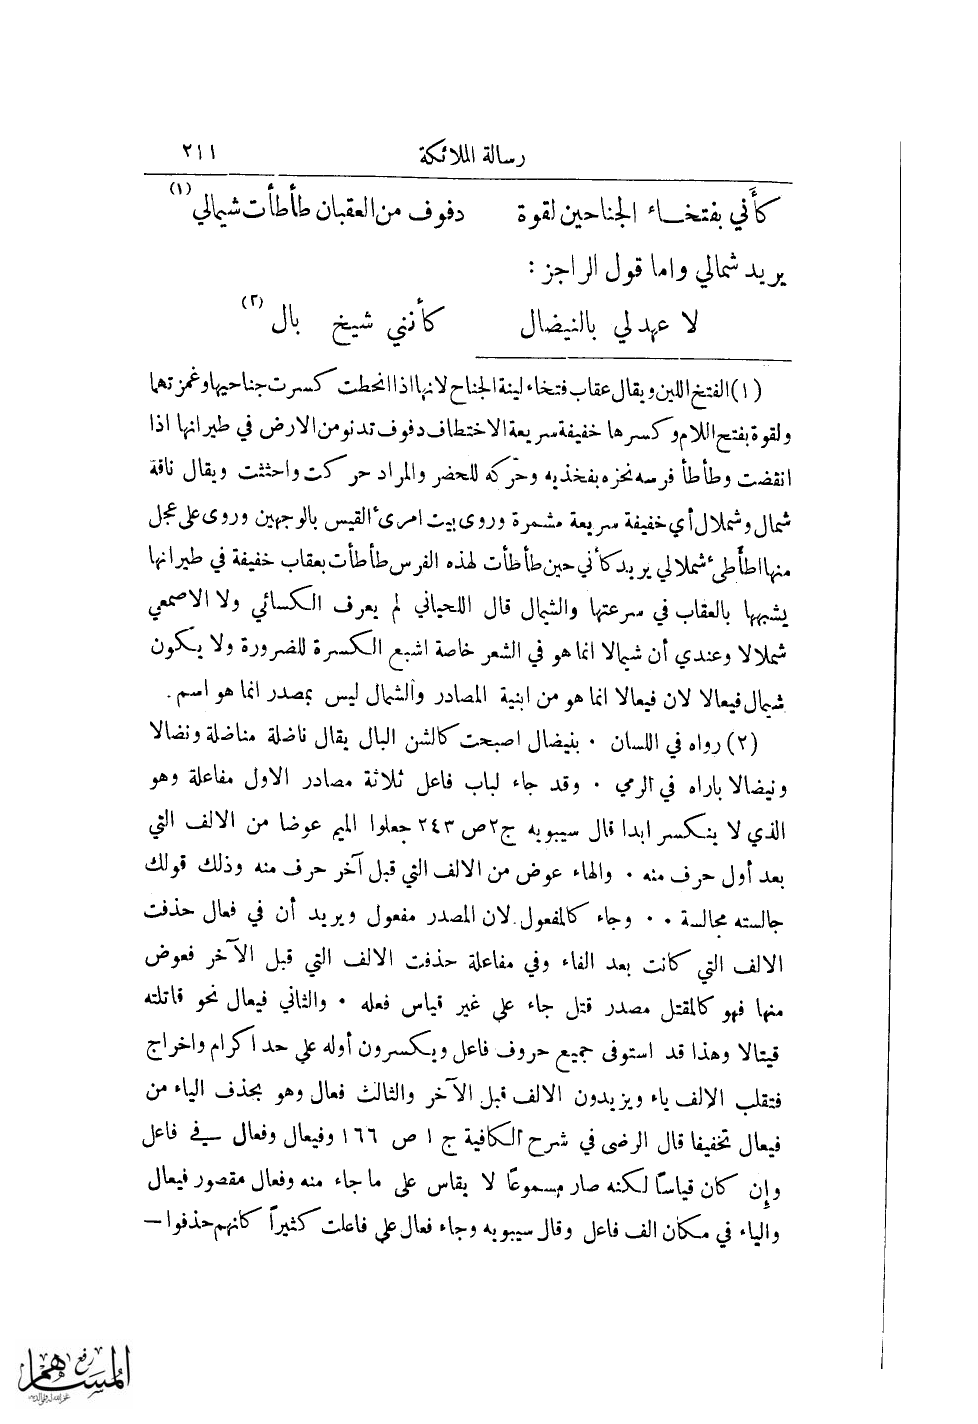 رسالة الملائكة ٢١١
كأَني بفتخاء الجناحين لقوة دفوف من العقبان طأطأت شيمالي (١)
يريد شمالي واما قول الراجز :
لا عهد لي بالنيضال كأنني شيخ بال (٢)
(١) الفتخ اللين ويقال عقاب فتخاء لينة الجناح لانها اذا انحطت كسرت جناحيها وغمزتهما
ولقوة بفتح اللام وكسرها خفيفة سريعة الاختطاف دفوف تدنو من الارض في طيرانها اذا
انقضت وطأطأ فرسه نحزه بفخذيه وحرّكه للحضر والمراد حركت واحثثت ويقال ناقة
شمال وشملال أي خفيفة سريعة مشمرة وروى بيت امرىء القيس بالوجهين وروى على عجل
منها اطأطىء شملالي يريد كأني حين طأطأت لهذه الفرس طأطأت بعقاب خفيفة في طيرانها
يشبهها بالعقاب في سرعتها والشيمال قال اللحياني لم يعرف الكسائي ولا الاصمعي
شملالا وعندي أن شيمالا انما هو في الشعر خاصة اشبع الكسرة للضرورة ولا يكون
شيمال فيعالا لان فيعالا انما هو من ابنية المصادر والشمال ليس بمصدر انما هو اسم .
(٢) رواه في اللسان . بنيضال اصبحت كالشن البال يقال ناضلة مناضلة ونضالا
ونيضالا باراه في الرمي . وقد جاء لباب فاعل ثلاثة مصادر الاول مفاعلة وهو
الذي لا ينكسر ابدا قال سيبويه ج٢ص ٢٤٣ جعلوا الميم عوضا من الالف التي
بعد أول حرف منه . والهاء عوض من الالف التي قبل آخر حرف منه وذلك قولك
جالسته مجالسة . . وجاء كالمفعول لان المصدر مفعول ويريد أن في فعال حذفت
الالف التي كانت بعد الفاء وفي مفاعلة حذفت الالف التي قبل الآخر فعوض
منها فهو كالمقتل مصدر قتل جاء على غير قياس فعله . والثاني فيعال نحو قاتلته
قيتالا وهذا قد استوفى جميع حروف فاعل ويكسرون أوله على حد اكرام واخراج
فتقلب الالف ياء ويزيدون الالف قبل الآخر والثالث فعال وهو بحذف الياء من
فيعال تخفيفا قال الرضى في شرح الكافية ج ١ ص ١٦٦ وفيعال وفعال في فاعل
وإن كان قياسًا لكنه صار مسموعًا لا يقاس على ما جاء منه وفعال مقصور فيعال
والياء في مكان الف فاعل وقال سيبويه وجاء فعال على فاعلت كثيراً كانهم حذفوا —
رفع
المساهم